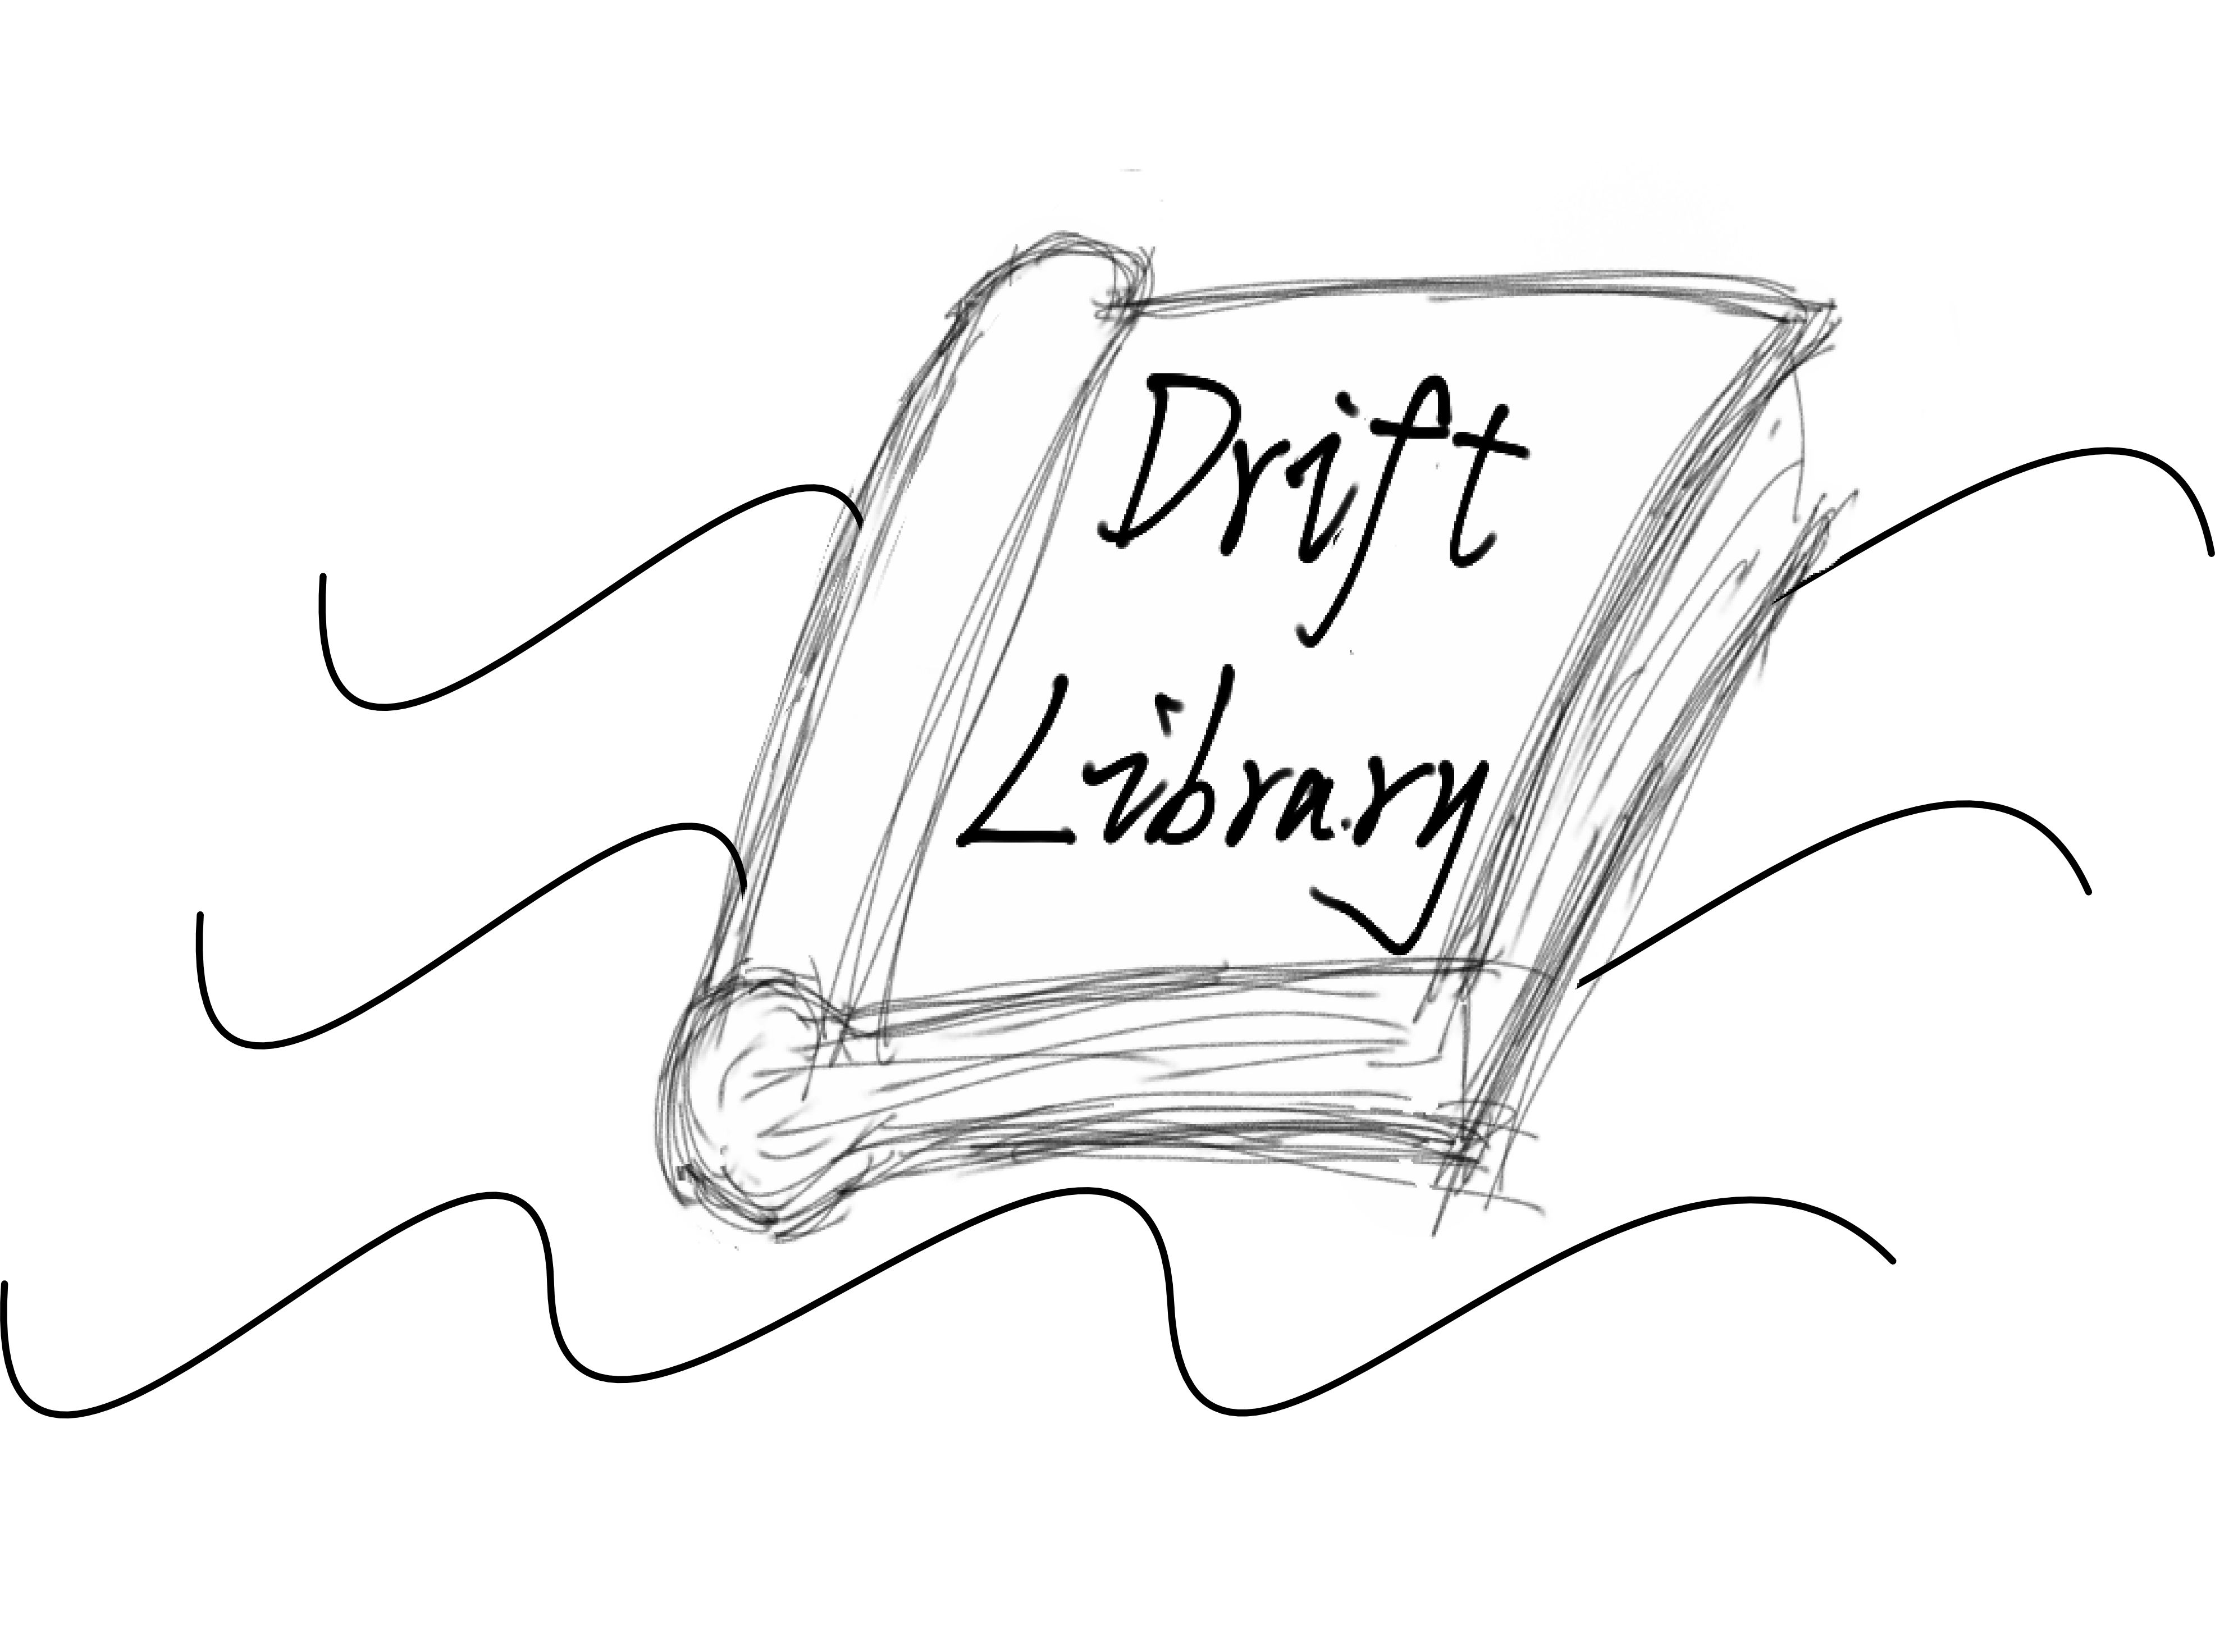 Drift
Library